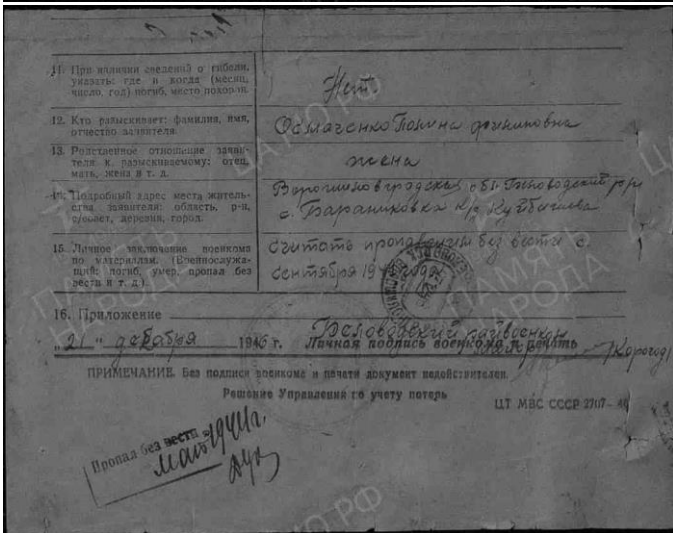 11. При наличии сведений о гибели, указать: где и когда (месяц, число, год) погиб, место похорон.
Нет.
12. Кто разыскивает: фамилия, имя, отчество заявителя.
Осмаченко Полина
13. Родственное отношение заявителя к разыскиваемому: отец, мать, жена и т. д.
жена
14. Подробный адрес места жительства заявителя: область, р-н, с/совет, деревня, город.
Ворошиловградская обл. Беловодский р-н
с. Бараниковка к/з Куйбышева
15. Личное заключение военкома по материалам. (Военнослужащий: погиб, умер, пропал без вести и т. д.).
Считать пропавшим без вести с
сентября
16. Приложение
Беловодский райвоенком
„21" декабря 1946 г. Личная подпись военкома и печать
ПРИМЕЧАНИЕ. Без подписи военкома и печати документ недействителен.
Решение Управления по учету потерь
ЦТ МВС СССР
Пропал без вести в
май 1944г.
ПАМЯТЬ НАРОДА
ЦАМО РФ